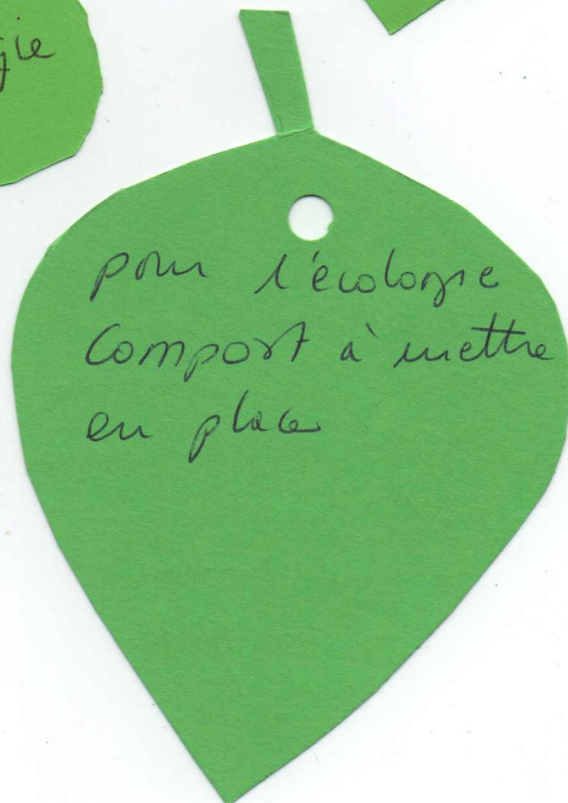 pour l'écologie
Compost à mettre
en place